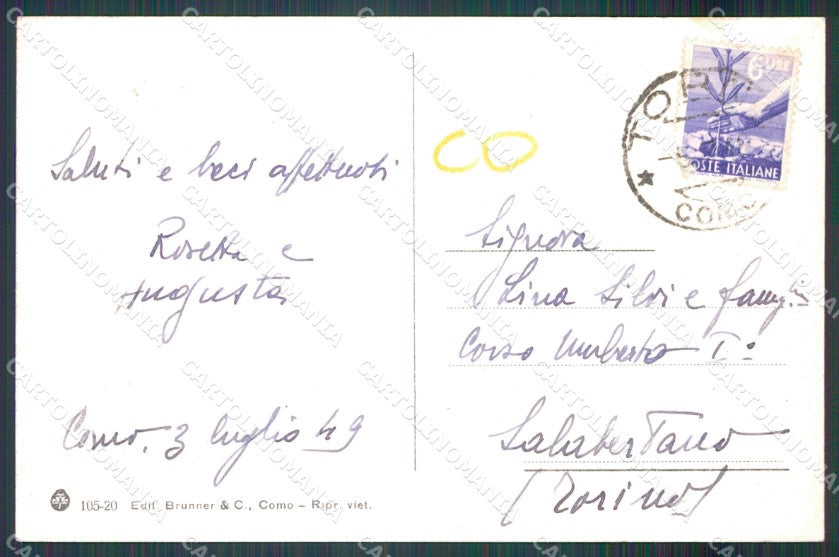 Saluti e baci affettuosi
Rosetta e
Augusta
Como, 3 luglio 49
105-20 Edit. Brunner & C., Como – Ripr. viet.
6 LIRE
POSTE ITALIANE
COMO
Signora
Lina Silvi e famiglia
Corso Umberto I°
Salabertano
(Torino)
CARTOLINOMANIA